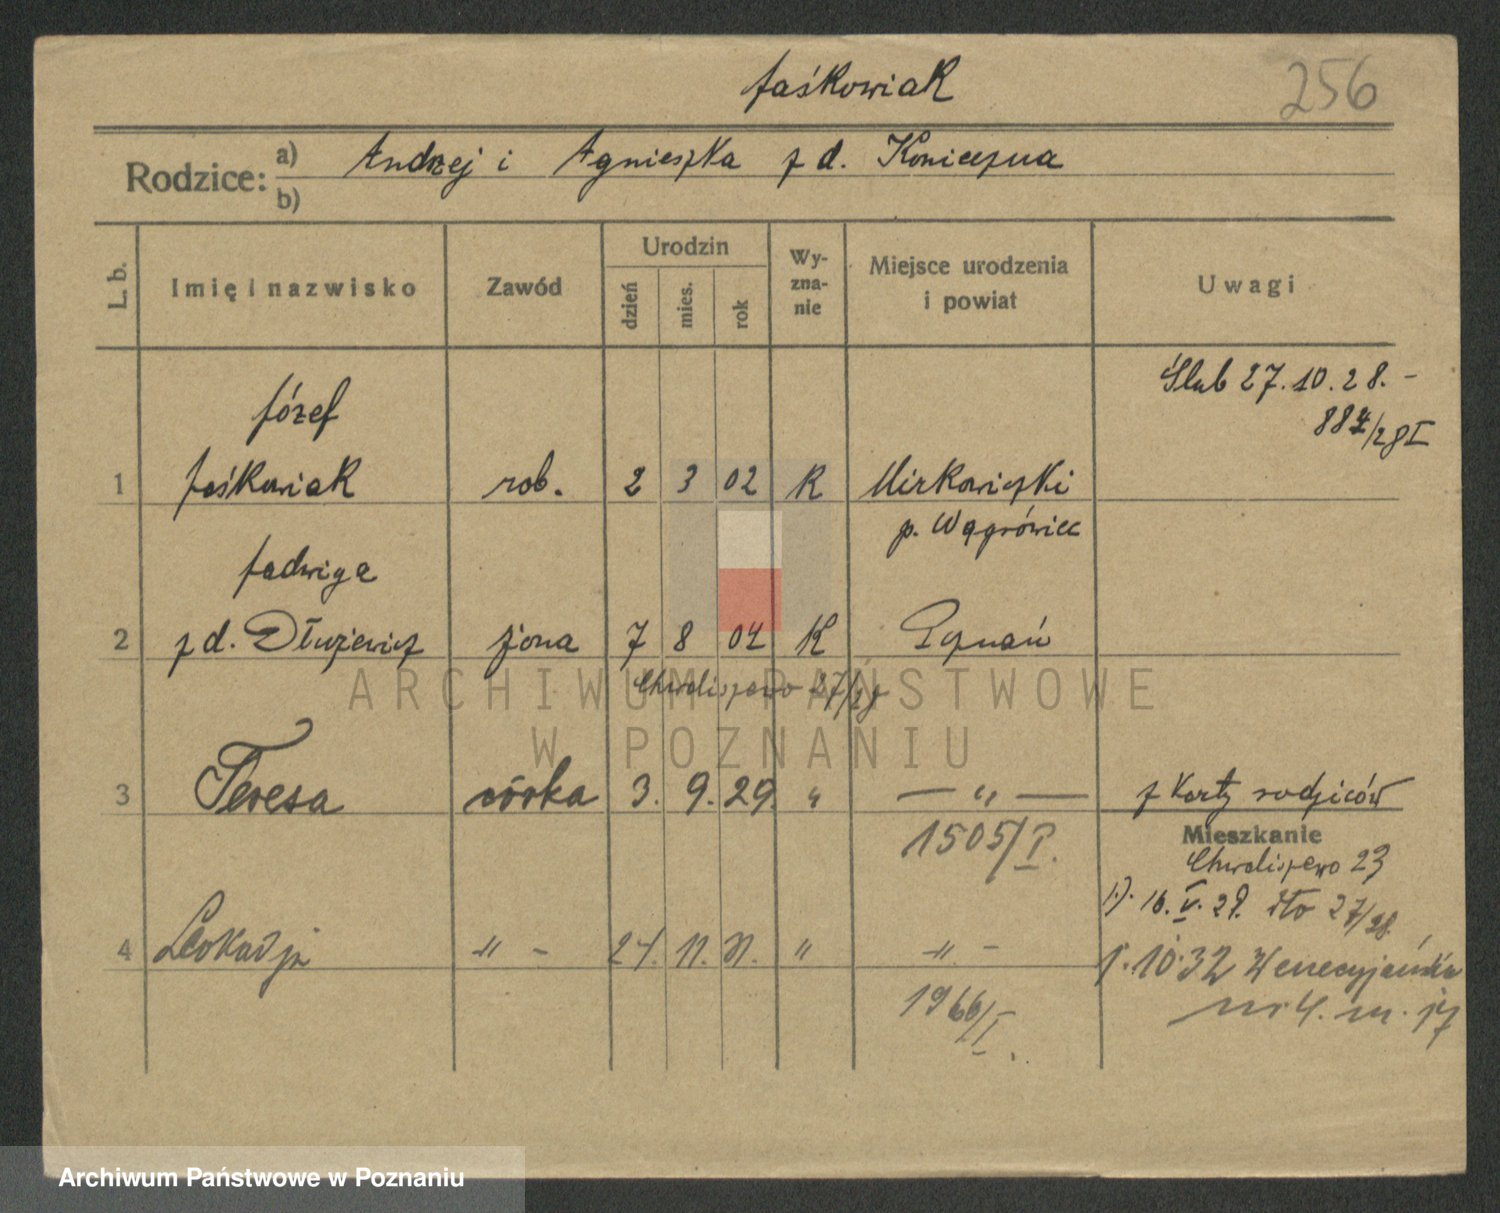 Jaśkowiak
256
Rodzice: a) Andrzej i Agnieszka z d. Konieczna
b)
L. b. Imię i nazwisko Zawód Urodzin dzień mies. rok Wyznanie Miejsce urodzenia i powiat Uwagi
Ślub 27.10.28.-
887/28 I
Józef
1 Jaśkowiak rob. 2 3 02 K Mirkowiczki
p. Wągrówiec
Jadwiga
2 z d. Dłużewicz żona 7 8 04 K Poznań
Chwaliszewo 27/29
ARCHIWUM PAŃSTWOWE
W POZNANIU
3 Teresa córka 3. 9. 29. " — " — z Karty rodziców
1505/I. Mieszkanie
Chwaliszewo 23
1). 16. V. 29. 27/28.
4 Leokadja " - 24. 11. 31. " " - 1.10.32 Wenecjańska
1966/I. nr 4. m. 17
Archiwum Państwowe w Poznaniu